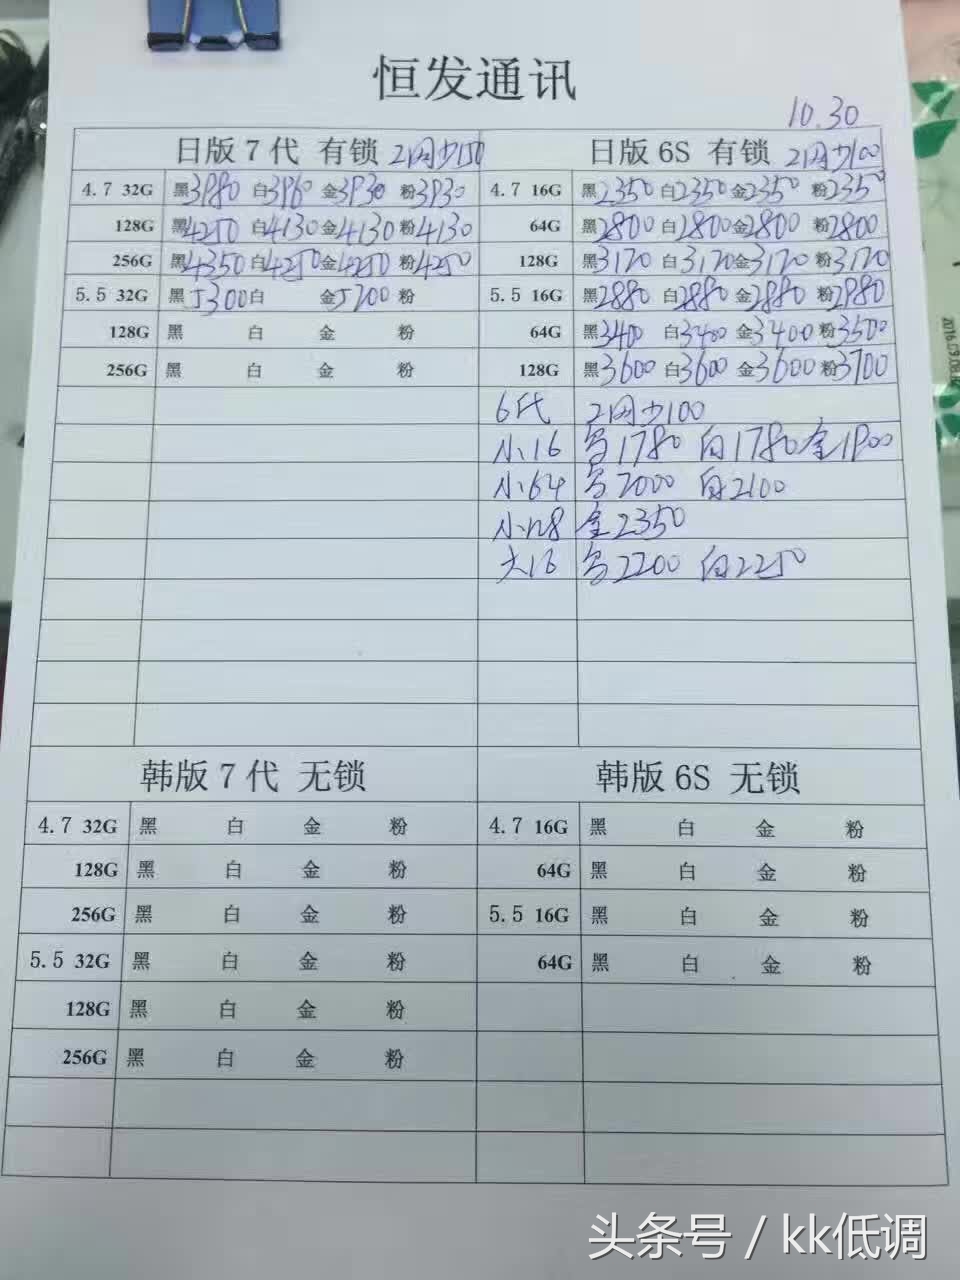 恒发通讯
10.30
日版7代 有锁 2网少150
4.7 32G 黑3980 白3960 金3930 粉3930
128G 黑4250 白4130 金4130 粉4130
256G 黑4350 白4250 金4250 粉4250
5.5 32G 黑5300 白 金5200 粉
128G 黑 白 金 粉
256G 黑 白 金 粉
日版6S 有锁 2网少100
4.7 16G 黑2350 白2350 金2350 粉2350
64G 黑2800 白2800 金2800 粉2800
128G 黑3170 白3170 金3170 粉3170
5.5 16G 黑2880 白2880 金2880 粉2980
64G 黑3400 白3400 金3400 粉3500
128G 黑3600 白3600 金3600 粉3700
6代 2网少100
小16 黑1780 白1780 金1900
小64 黑2000 白2100
小128 金2350
大16 黑2200 白2250
韩版7代 无锁
4.7 32G 黑 白 金 粉
128G 黑 白 金 粉
256G 黑 白 金 粉
5.5 32G 黑 白 金 粉
128G 黑 白 金 粉
256G 黑 白 金 粉
韩版6S 无锁
4.7 16G 黑 白 金 粉
64G 黑 白 金 粉
5.5 16G 黑 白 金 粉
64G 黑 白 金 粉
头条号 / kk低调